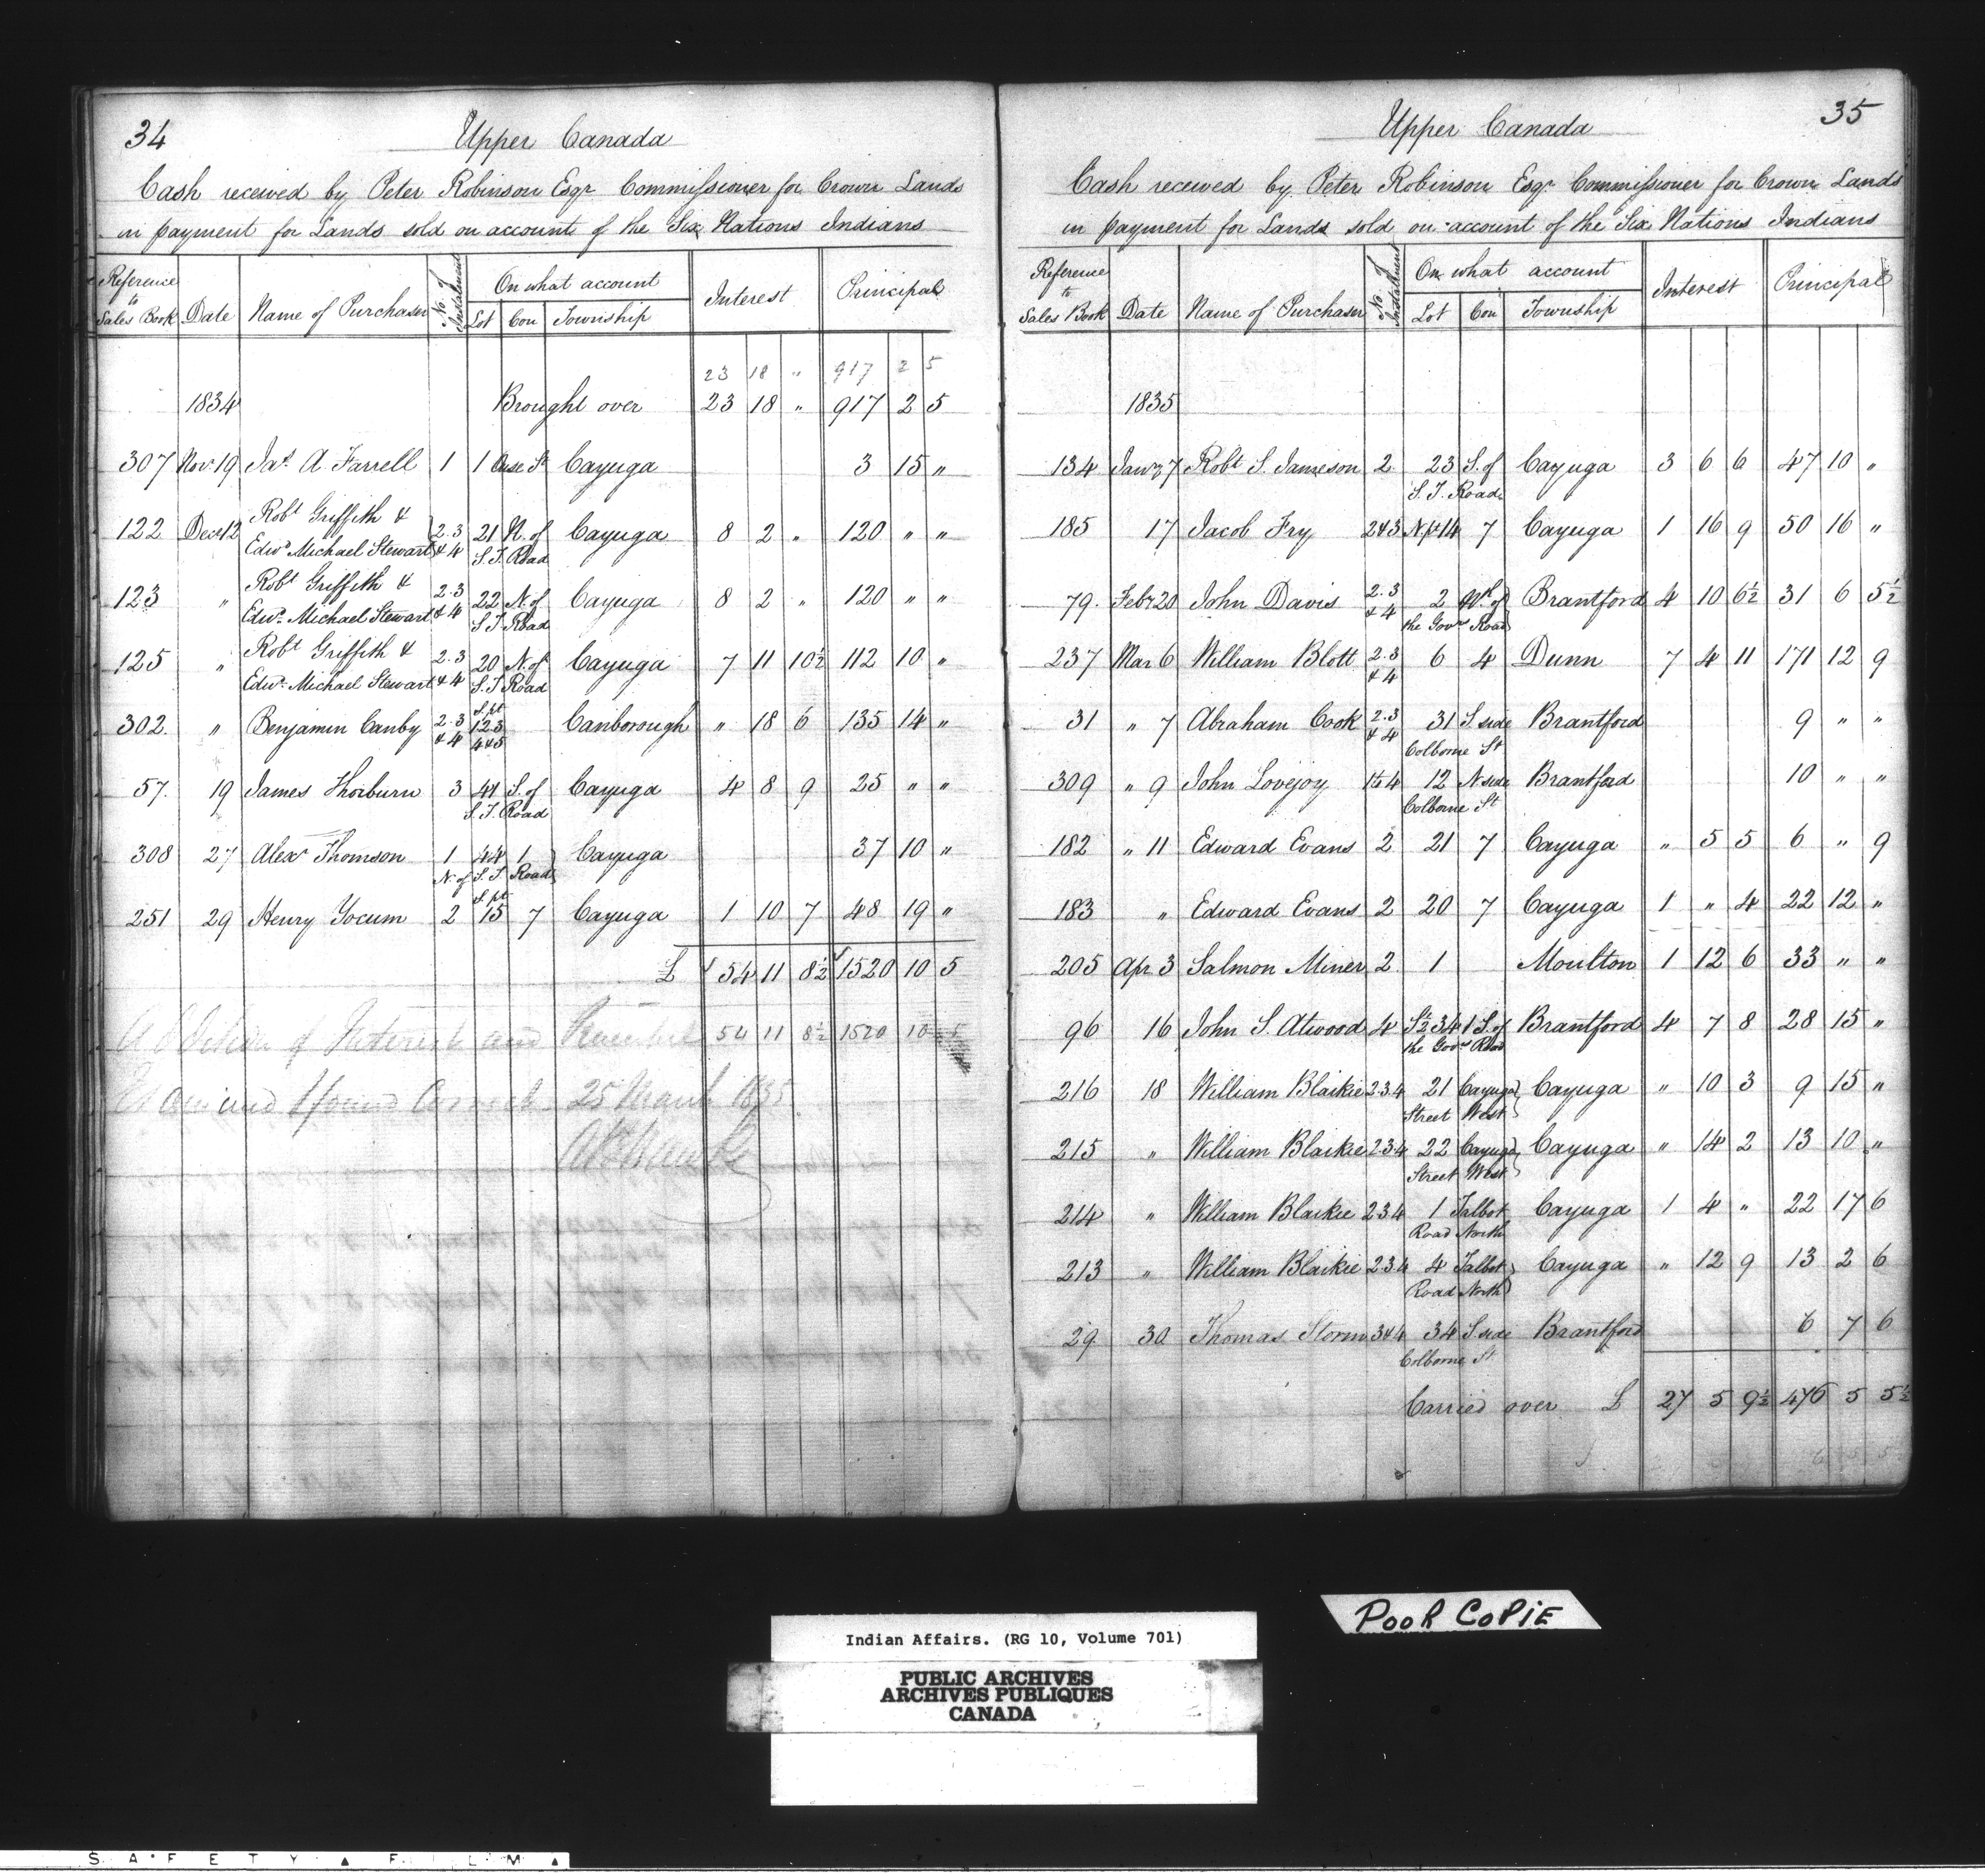 34
Upper Canada
Cash received by Peter Robinson Esqr Commissioner for Crown Lands
in payment for Lands sold on account of the Six Nations Indians
Reference to Sales Book Date Name of Purchaser No. of Instalment On what account Lot Con Township Interest Principal
23 18 " 917 2 5
1834 Brought over 23 18 " 917 2 5
307 Novr 19 Jas. A. Farrell 1 1 Ouse St Cayuga 3 15 "
122 Decr 12 Robt Griffith & Edwd Michael Stewart 2.3 & 4 21 N. of S.T. Road Cayuga 8 2 " 120 " "
123 " Robt Griffith & Edwd Michael Stewart 2.3 & 4 22 N. of S.T. Road Cayuga 8 2 " 120 " "
125 " Robt Griffith & Edwd Michael Stewart 2.3 & 4 20 N. of S.T. Road Cayuga 7 11 10½ 112 10 "
302. " Benjamin Canby 2.3 & 4 S. pt 123 4&5 Canborough " 18 6 135 14 "
57. 19 James Thorburn 3 41 S. of S.T. Road Cayuga 4 8 9 25 " "
308 27 Alexr Thomson 1 44 1 N. of S.T. Road Cayuga 37 10 "
251 29 Henry Yocum 2 S. pt 15 7 Cayuga 1 10 7 48 19 "
£ 54 11 8½ 1520 10 5
Addition of Interest and 54 11 8½ 1520 10 5
Examined & found Correct 25 March 1835
35
Upper Canada
Cash received by Peter Robinson Esqr Commissioner for Crown Lands
in payment for Lands sold on account of the Six Nations Indians
Reference to Sales Book Date Name of Purchaser No. of Instalment On what account Lot Con Township Interest Principal
1835
134 Janry 7 Robt S. Jameson 2 23 S. of S.T. Road Cayuga 3 6 6 47 10 "
185 17 Jacob Fry 2&3 N. pt 14 7 Cayuga 1 16 9 50 16 "
79. Febr 20 John Davis 2.3 & 4 2 N. of the Govrs Road Brantford 4 10 6½ 31 6 5½
237 Mar 6 William Blott 2.3 & 4 6 4 Dunn 7 4 11 171 12 9
31 " 7 Abraham Cook 2.3 & 4 31 S. side Colborne St Brantford 9 " "
309 " 9 John Lovejoy 1 to 4 12 N side Colborne St Brantford 10 " "
182 " 11 Edward Evans 2 21 7 Cayuga " 5 5 6 " 9
183 " Edward Evans 2 20 7 Cayuga 1 " 4 22 12 "
205 Apr 3 Salmon Miner 2 1 Moulton 1 12 6 33 " "
96 16 John S. Atwood 4 S½ 34 1 S. of the Govrs Road Brantford 4 7 8 28 15 "
216 18 William Blaikie 2 3 4 21 Cayuga Street West Cayuga " 10 3 9 15 "
215 " William Blaikie 2 3 4 22 Cayuga Street West Cayuga " 14 2 13 10 "
214 " William Blaikie 2 3 4 1 Talbot Road North Cayuga 1 4 " 22 17 6
213 " William Blaikie 2 3 4 4 Talbot Road North Cayuga " 12 9 13 2 6
29 30 Thomas Storm 3&4 34 S. side Colborne St Brantford 6 7 6
Carried over £ 27 5 9½ 476 5 5½
POOR COPIE
Indian Affairs. (RG 10, Volume 701)
PUBLIC ARCHIVES
ARCHIVES PUBLIQUES
CANADA
SAFETY FILM